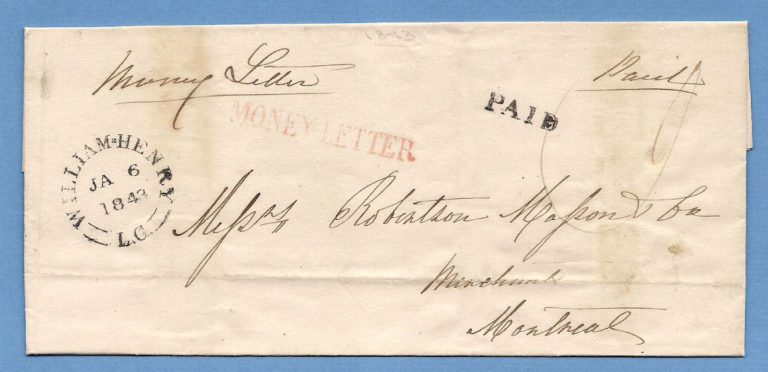 1843
Money Letter Paid
MONEY-LETTER
PAID
WILLIAM-HENRY
JA 6
1843
L.C.
Messrs Robertson Masson & Co
Merchants
Montreal